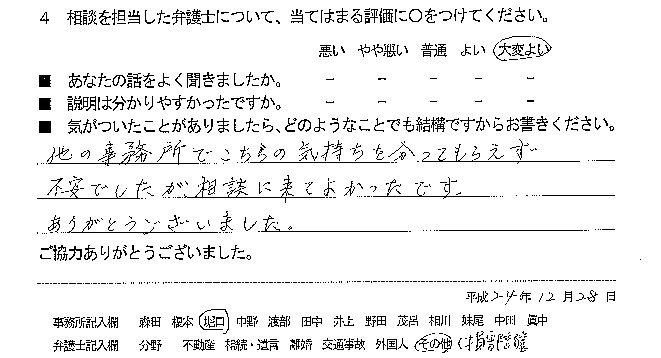 4 相談を担当した弁護士について、当てはまる評価に○をつけてください。
悪い やや悪い 普通 よい 大変よい
■ あなたの話をよく聞きましたか。 － － － － －
■ 説明は分かりやすかったですか。 － － － － －
■ 気がついたことがありましたら、どのようなことでも結構ですからお書きください。
他の事務所でこちらの気持ちを分ってもらえず
不安でしたが、相談に来てよかったです。
ありがとうございました。
ご協力ありがとうございました。
平成24年12月28日
事務所記入欄 森田 榎本 堀口 中野 渡部 田中 井上 野田 茂呂 相川 妹尾 中田 眞中
弁護士記入欄 分野 不動産 相続・遺言 離婚 交通事故 外国人 その他 (損害賠償